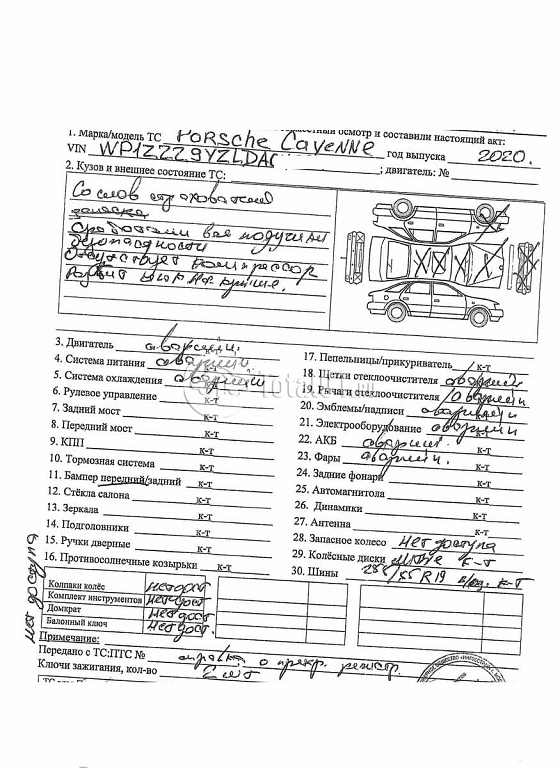 1. Марка/модель ТС Porsche Cayenne осмотр и составили настоящий акт:
VIN WP1ZZZ9YZLDA год выпуска 2020.
; двигатель: №
2. Кузов и внешнее состояние ТС:
Со слов
сработали все подушки
безопасности
Отсутствует компрессор
3. Двигатель аварийн.
4. Система питания аварийн
5. Система охлаждения аварийн
6. Рулевое управление к-т
7. Задний мост к-т
8. Передний мост к-т
9. КПП к-т
10. Тормозная система к-т
11. Бампер передний/задний к-т
12. Стёкла салона к-т
13. Зеркала к-т
14. Подголовники к-т
15. Ручки дверные к-т
16. Противосолнечные козырьки к-т
17. Пепельницы/прикуриватель к-т
18. Щетки стеклоочистителя аварийн
19. Рычаги стеклоочистителя аварийн
20. Эмблемы/надписи аварийн
21. Электрооборудование аварийн
22. АКБ аварийн.
23. Фары аварийн.
24. Задние фонари к-т
25. Автомагнитола к-т
26. Динамики к-т
27. Антенна к-т
28. Запасное колесо нет доступа
29. Колёсные диски литые к-т
30. Шины 255/55 R19 к-т
нет доступа
Колпаки колёс нет дост
Комплект инструментов нет дост
Домкрат нет дост
Балонный ключ нет дост.
Примечание:
Передано с ТС:ПТС № справка о прекр. регистр.
Ключи зажигания, кол-во 2 шт